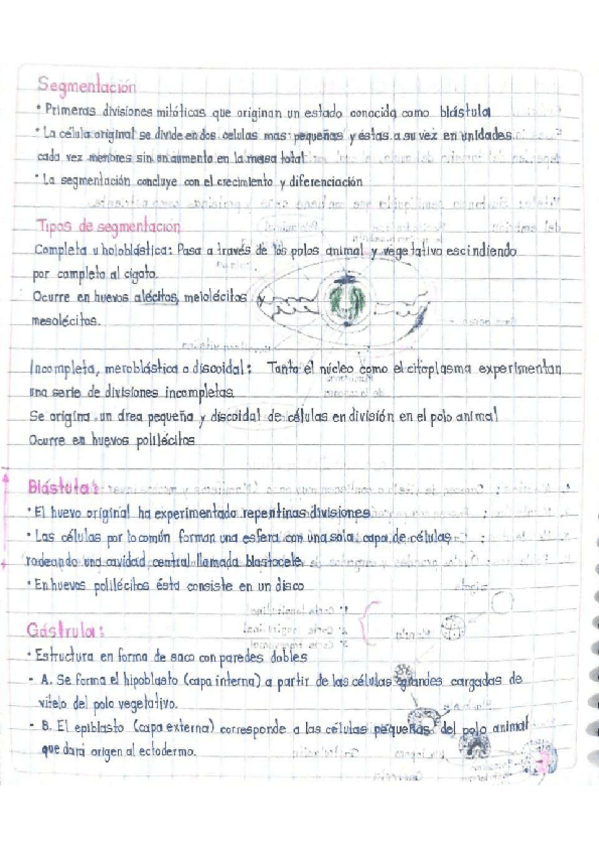 Segmentación
• Primeras divisiones mitóticas que originan un estado conocida como blástula
• La célula original se divide en dos celulas mas pequeñas y éstas a su vez en unidades
cada vez menores sin un aumento en la masa total
• La segmentación concluye con el crecimiento y diferenciación
Tipos de segmentación
Completa u holoblástica: Pasa a través de los polos animal y vegetativo escindiendo
por completo al cigoto.
Ocurre en huevos alécitos, meiolécitos y
mesolécitos.
Incompleta, meroblástica o discoidal: Tanto el núcleo como el citoplasma experimentan
una serie de divisiones incompletas
Se origina un área pequeña y discoidal de células en división en el polo animal
Ocurre en huevos polilécitos
Blástula:
• El huevo original ha experimentado repentinas divisiones
• Las células por lo común forman una esfera con una sola capa de células
rodeando una cavidad central llamada blastocele
• En huevos polilécitos ésta consiste en un disco
Gástrula:
• Estructura en forma de saco con paredes dobles
- A. Se forma el hipoblasto (capa interna) a partir de las células grandes cargadas de
vitelo del polo vegetativo.
- B. El epiblasto (capa externa) corresponde a las células pequeñas del polo animal
que dará origen al ectodermo.